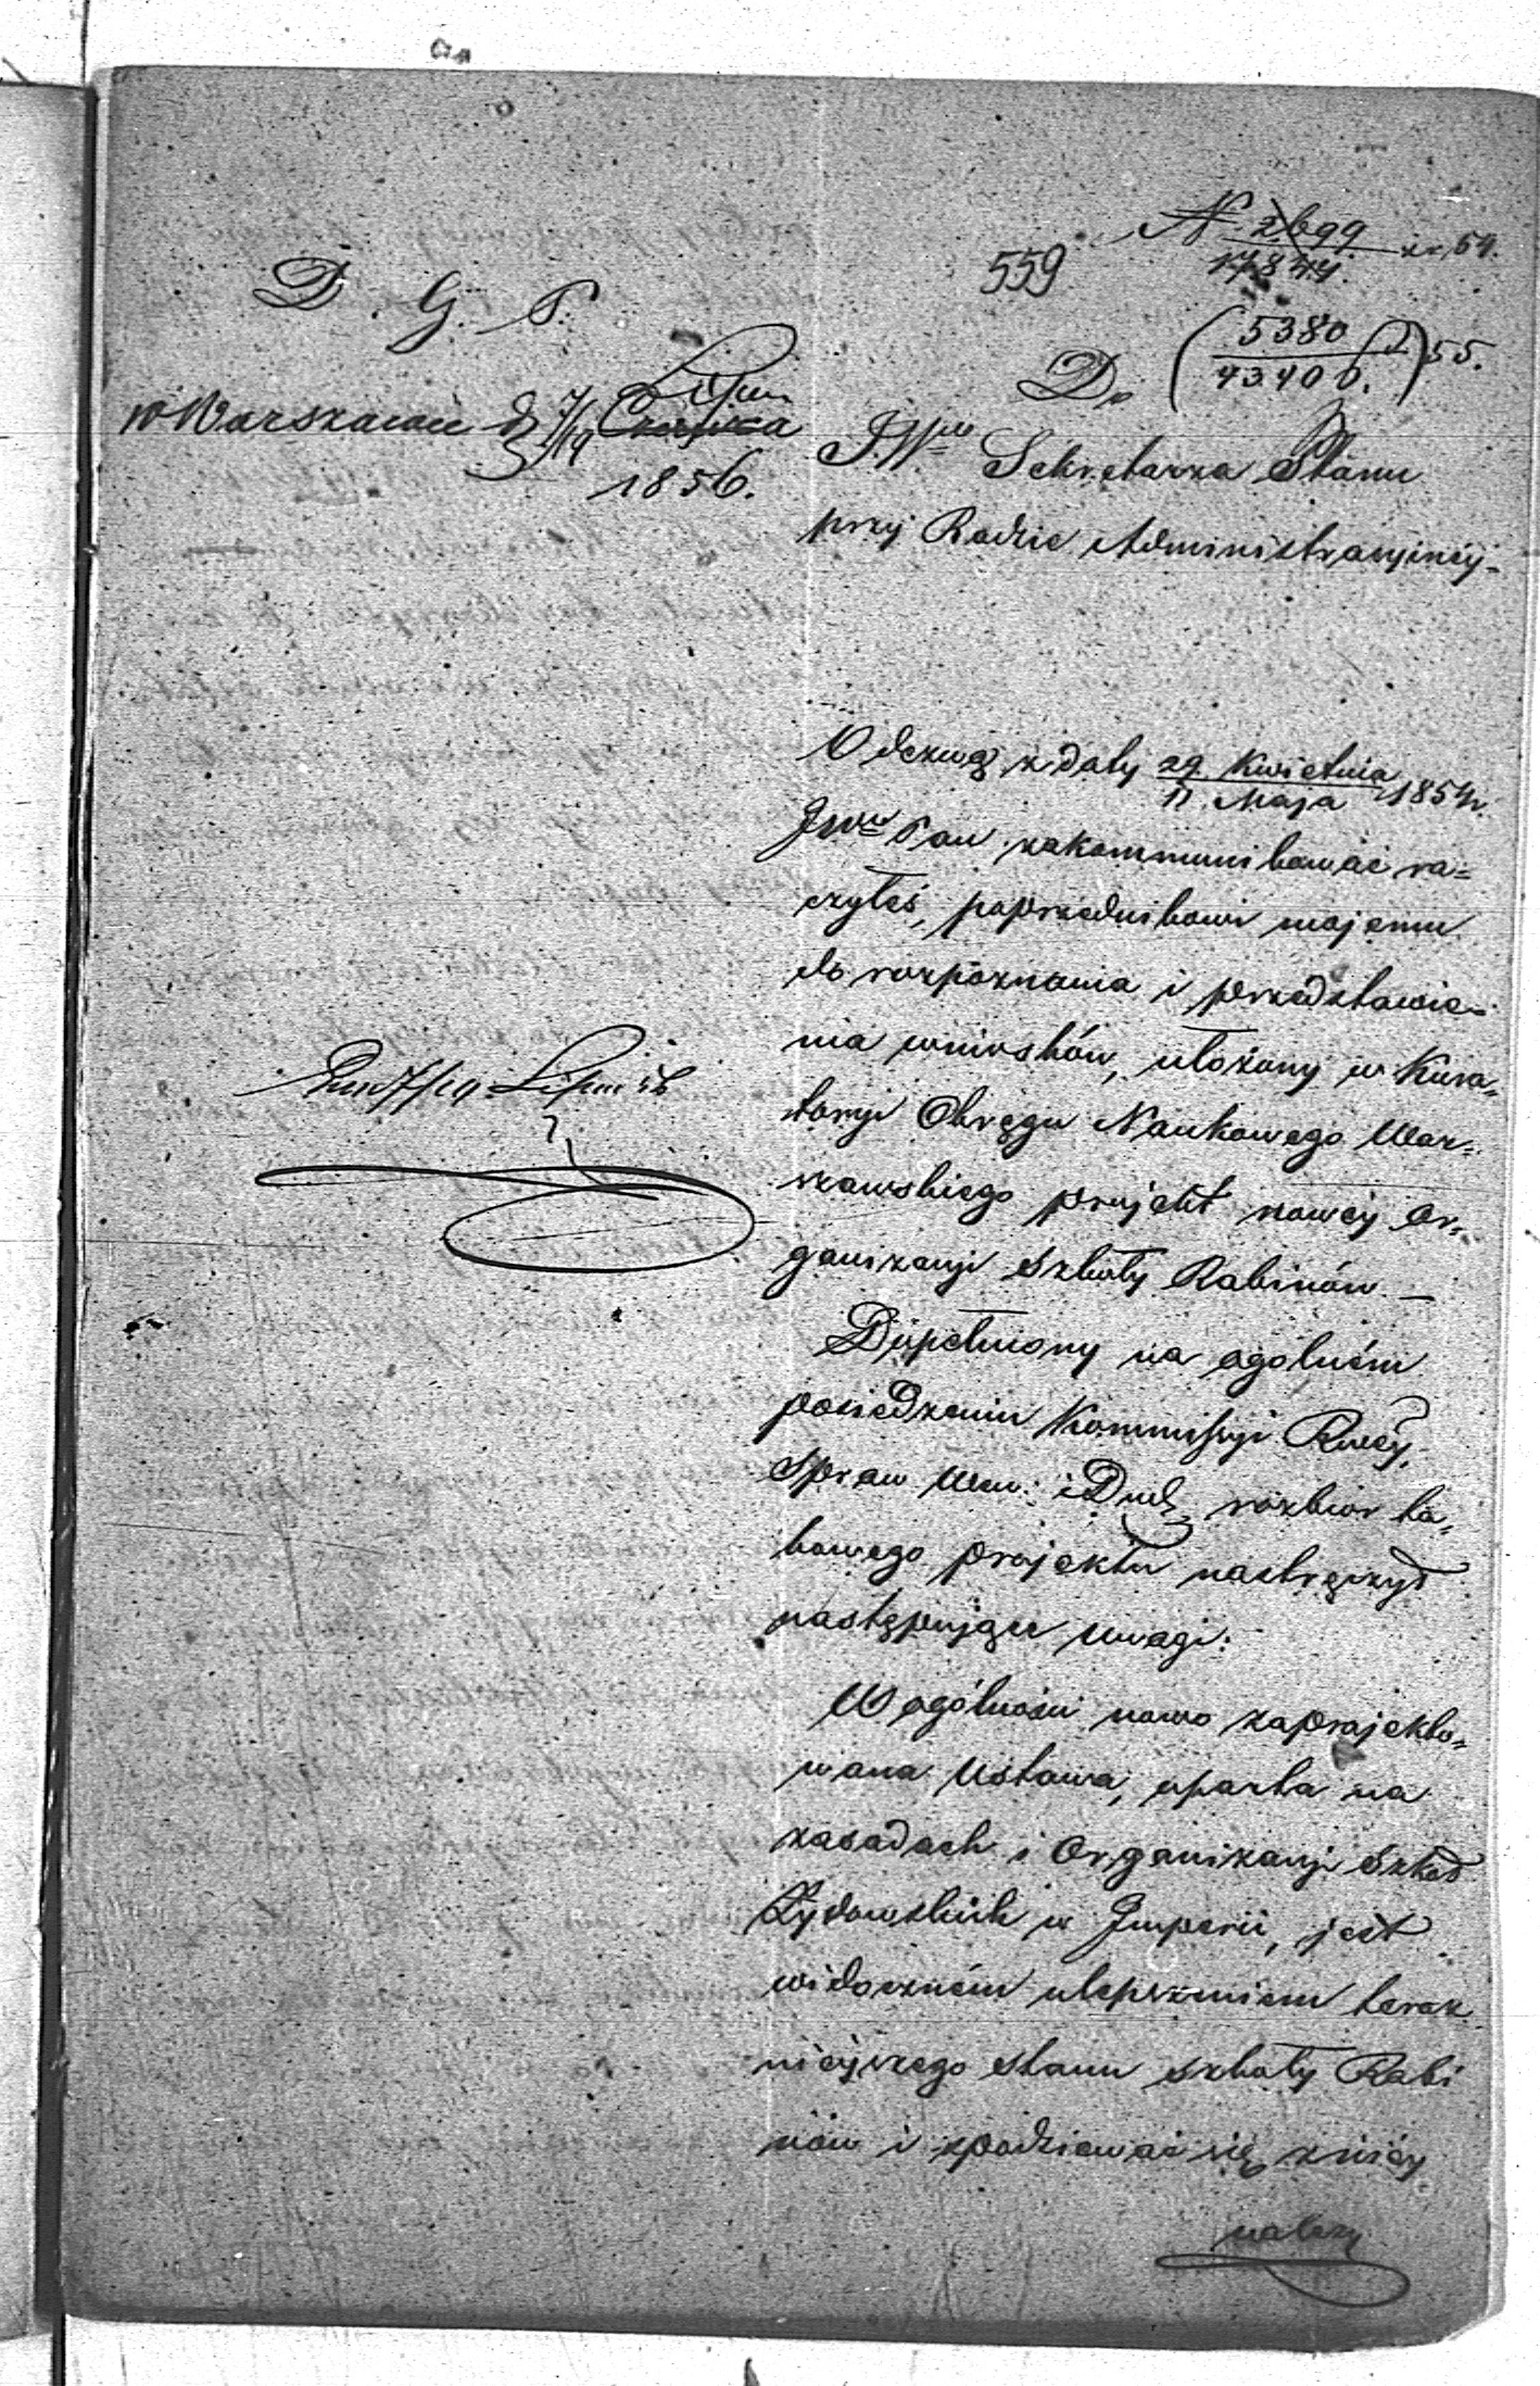 N. 2699 z r. 54.
17844.
559
D. G. P.
(5380 55.
43400.)
Do
w Warszawie d 7/19 Lipca
Czerwca
1856.
JWgo Sekretarza Stanu
przy Radzie Administracyjnéj
Odezwą z daty 29 Kwietnia
11 Maja 1854 r.
JWny Pan zakommunikować ra=
czyłeś, poprzednikowi mojemu
do rozpoznania i przedstawie=
nia wniosków, ułożony w Kura=
toryi Okręgu Naukowego War=
szawskiego projekt nowéj Or=
ganizacyi Szkoły Rabinów. —
7/19 Lipca
Dopełniony na ogólném
posiedzeniu Kommissyi Rząéj
Spraw Wew: i Duch. rozbiór ta=
kowego projektu nastręczył
następujące uwagi:
W ogólności nowo zaprojekto=
wana Ustawa, oparta na
zasadach i Organizacyi Szkół
Żydowskich w Imperii, jest
widoczném ulepszeniem teraz
niejszego stanu szkoły Rabi
nów i spodziewać się z niéj
należy